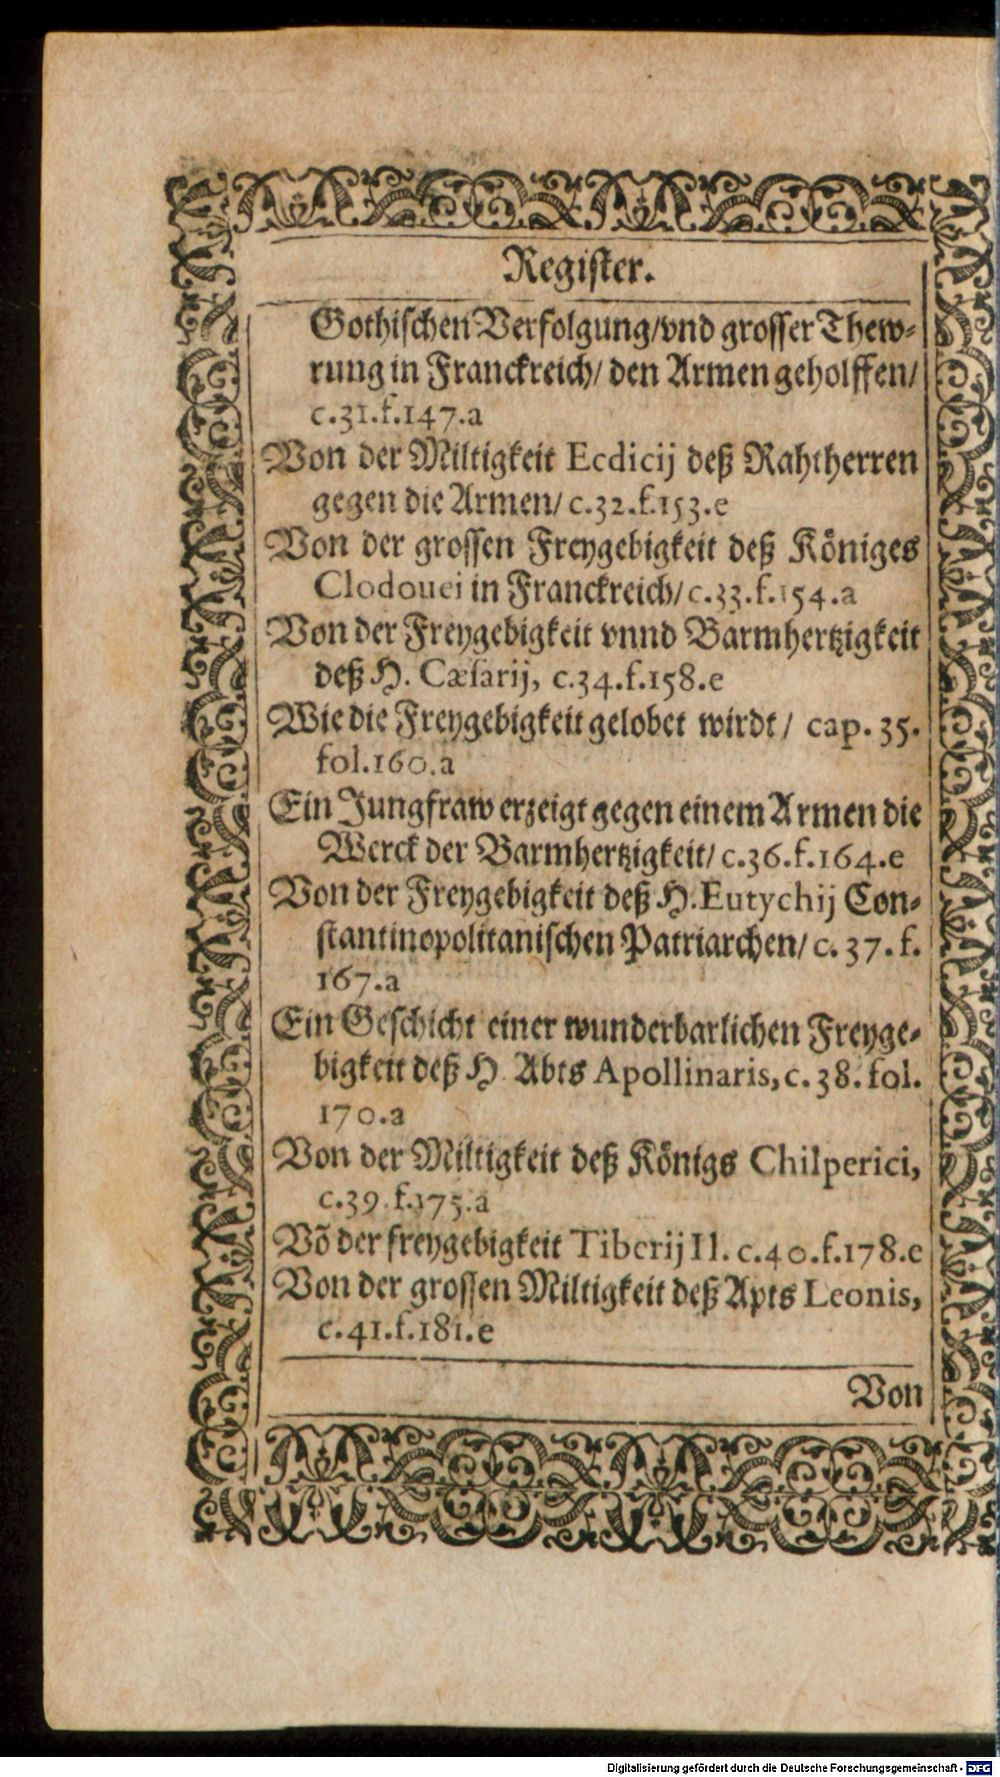 Register.
Gothischen Verfolgung/vnd grosser Thew-
rung in Franckreich/ den Armen geholffen/
c.31.f.147.a
Von der Miltigkeit Ecdicij deß Rahtherren
gegen die Armen/ c.32.f.153.e
Von der grossen Freygebigkeit deß Königes
Clodouei in Franckreich/ c.33.f.154.a
Von der Freygebigkeit vnnd Barmhertzigkeit
deß H. Cæsarij, c.34.f.158.e
Wie die Freygebigkeit gelobet wirdt/ cap. 35.
fol.160.a
Ein Jungfraw erzeigt gegen einem Armen die
Werck der Barmhertzigkeit/ c.36.f.164.e
Von der Freygebigkeit deß H. Eutychij Con-
stantinopolitanischen Patriarchen/ c. 37. f.
167.a
Ein Geschicht einer wunderbarlichen Freyge-
bigkeit deß H Abts Apollinaris, c.38. fol.
170.a
Von der Miltigkeit deß Königs Chilperici,
c.39.f.175.a
Võ der freygebigkeit Tiberij II. c.40.f.178.e
Von der grossen Miltigkeit deß Apts Leonis,
c.41.f.181.e
Von
Digitalisierung gefördert durch die Deutsche Forschungsgemeinschaft - DFG